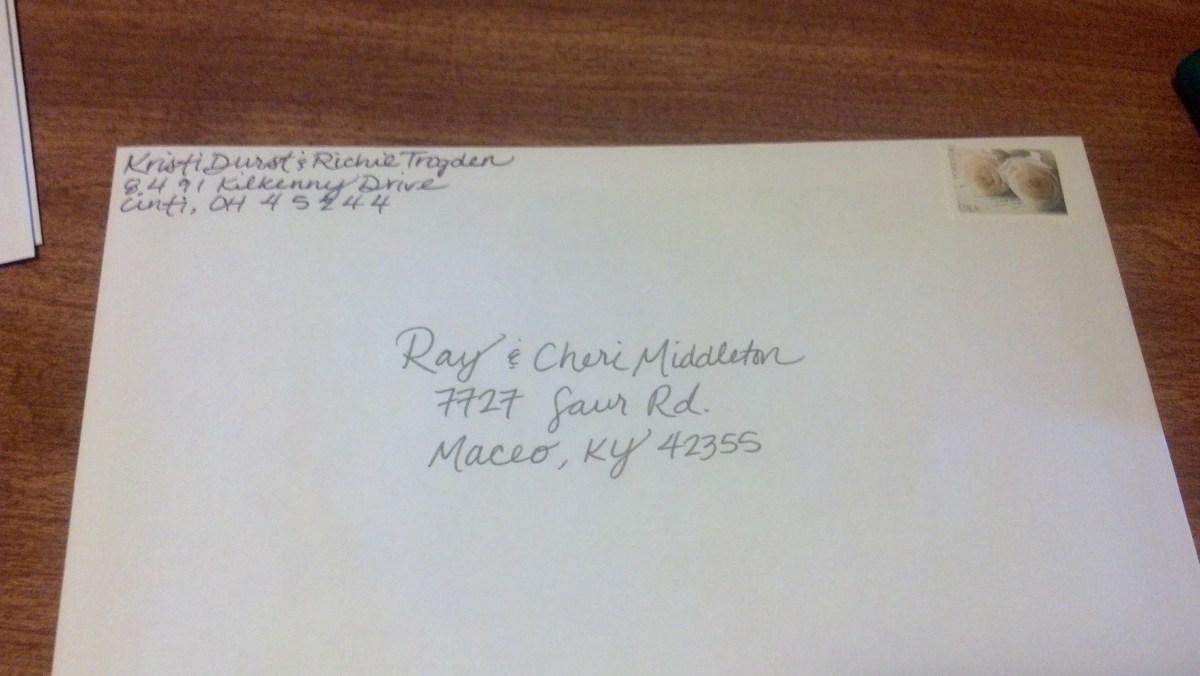 Kristi Durst & Richie Trogden
8491 Kilkenny Drive
Cinti, OH 45244
USA
Ray & Cheri Middleton
7727 Saur Rd.
Maceo, KY 42355